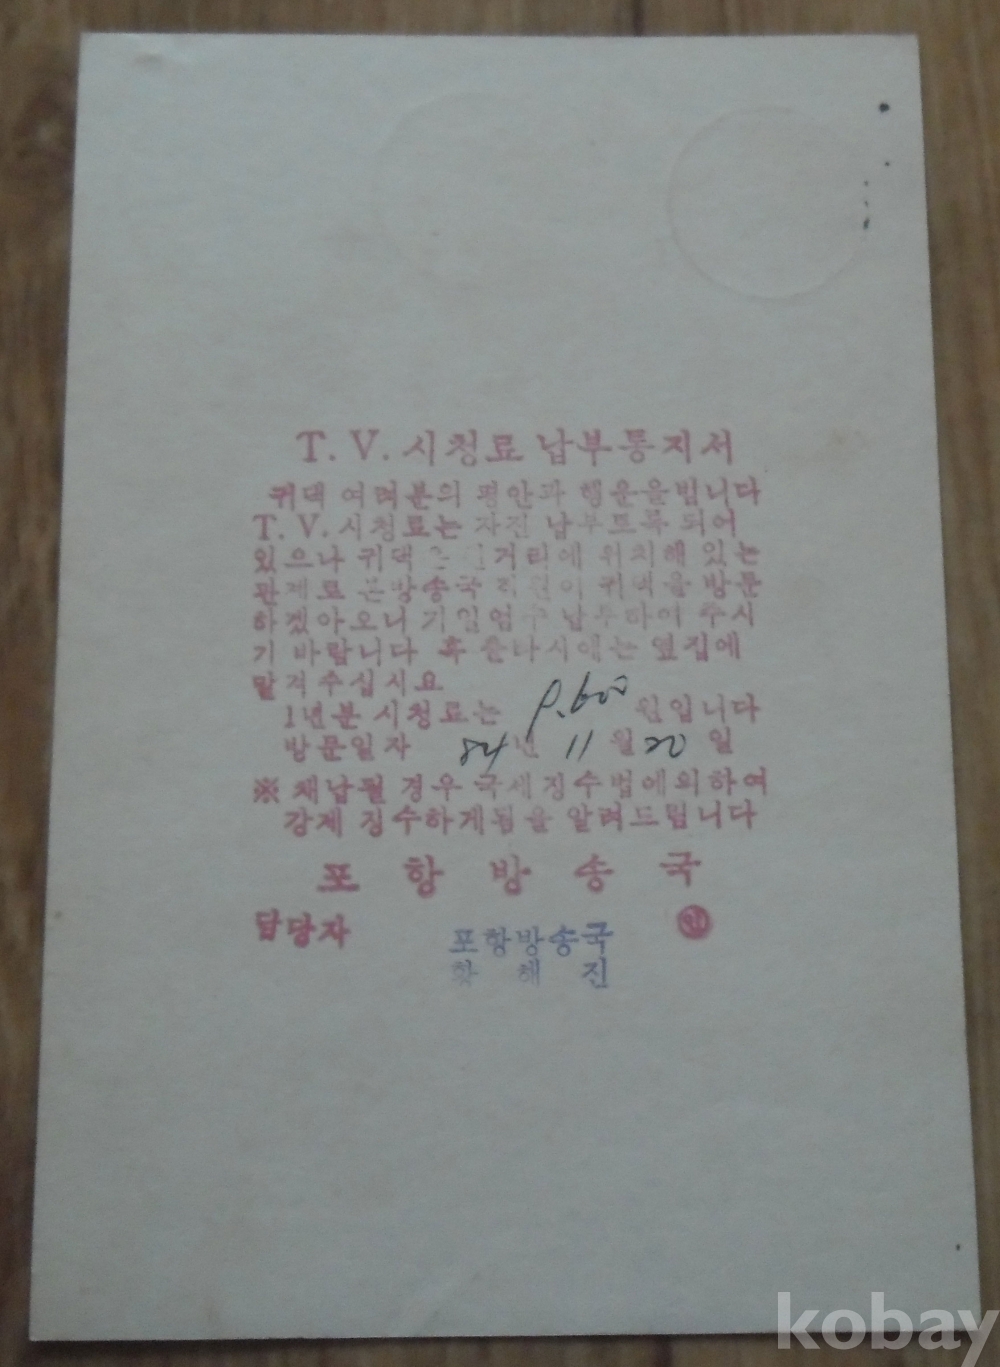 T. V. 시청료 납부통지서
귀댁 여러분의 평안과 행운을빕니다
T. V. 시청료는 자진 납부토록 되어
있으나 귀댁 거리에 위치해 있는
관계로 본방송국 직원이 귀댁을 방문
하겠아오니 기일엄수 납부하여 주시
기 바랍니다 혹 출타시에는 옆집에
맡겨주십시요
1년분 시청료는 9.600 원입니다
방문일자 84년 11월 20일
※ 체납될 경우 국세징수법에의하여
강제 징수하게됨을 알려드립니다
포항방송국
담당자 인
포항방송국
황해진
kobay